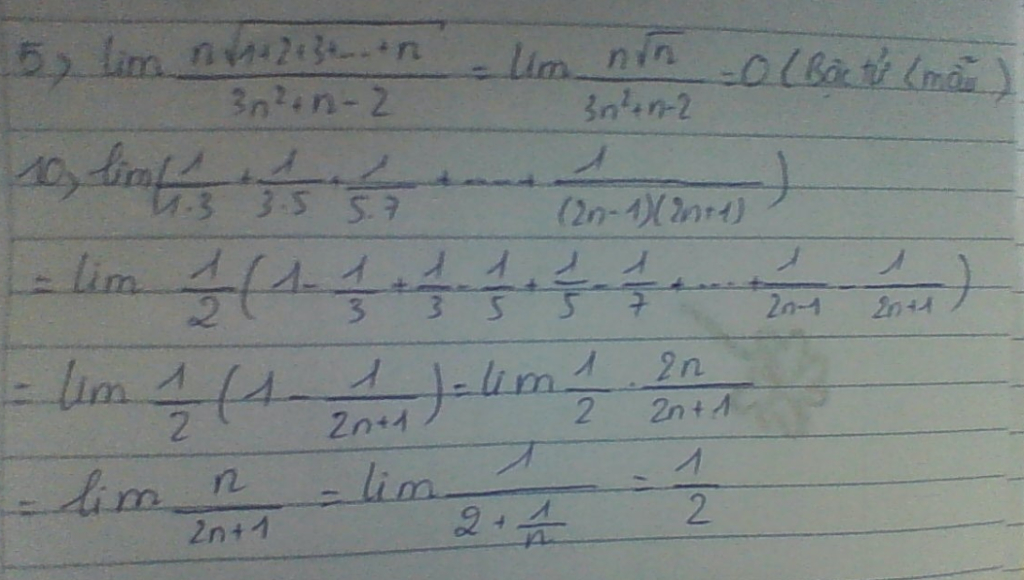 5, lim n√(1+2+3+...+n) / (3n²+n-2) = lim n√n / (3n²+n-2) = 0 (Bậc tử < mẫu)
10, lim(1/(1.3) + 1/(3.5) + 1/(5.7) + ... + 1/((2n-1)(2n+1)))
= lim 1/2 (1 - 1/3 + 1/3 - 1/5 + 1/5 - 1/7 + ... + 1/(2n-1) - 1/(2n+1))
= lim 1/2 (1 - 1/(2n+1)) = lim 1/2 . 2n/(2n+1)
= lim n/(2n+1) = lim 1/(2 + 1/n) = 1/2